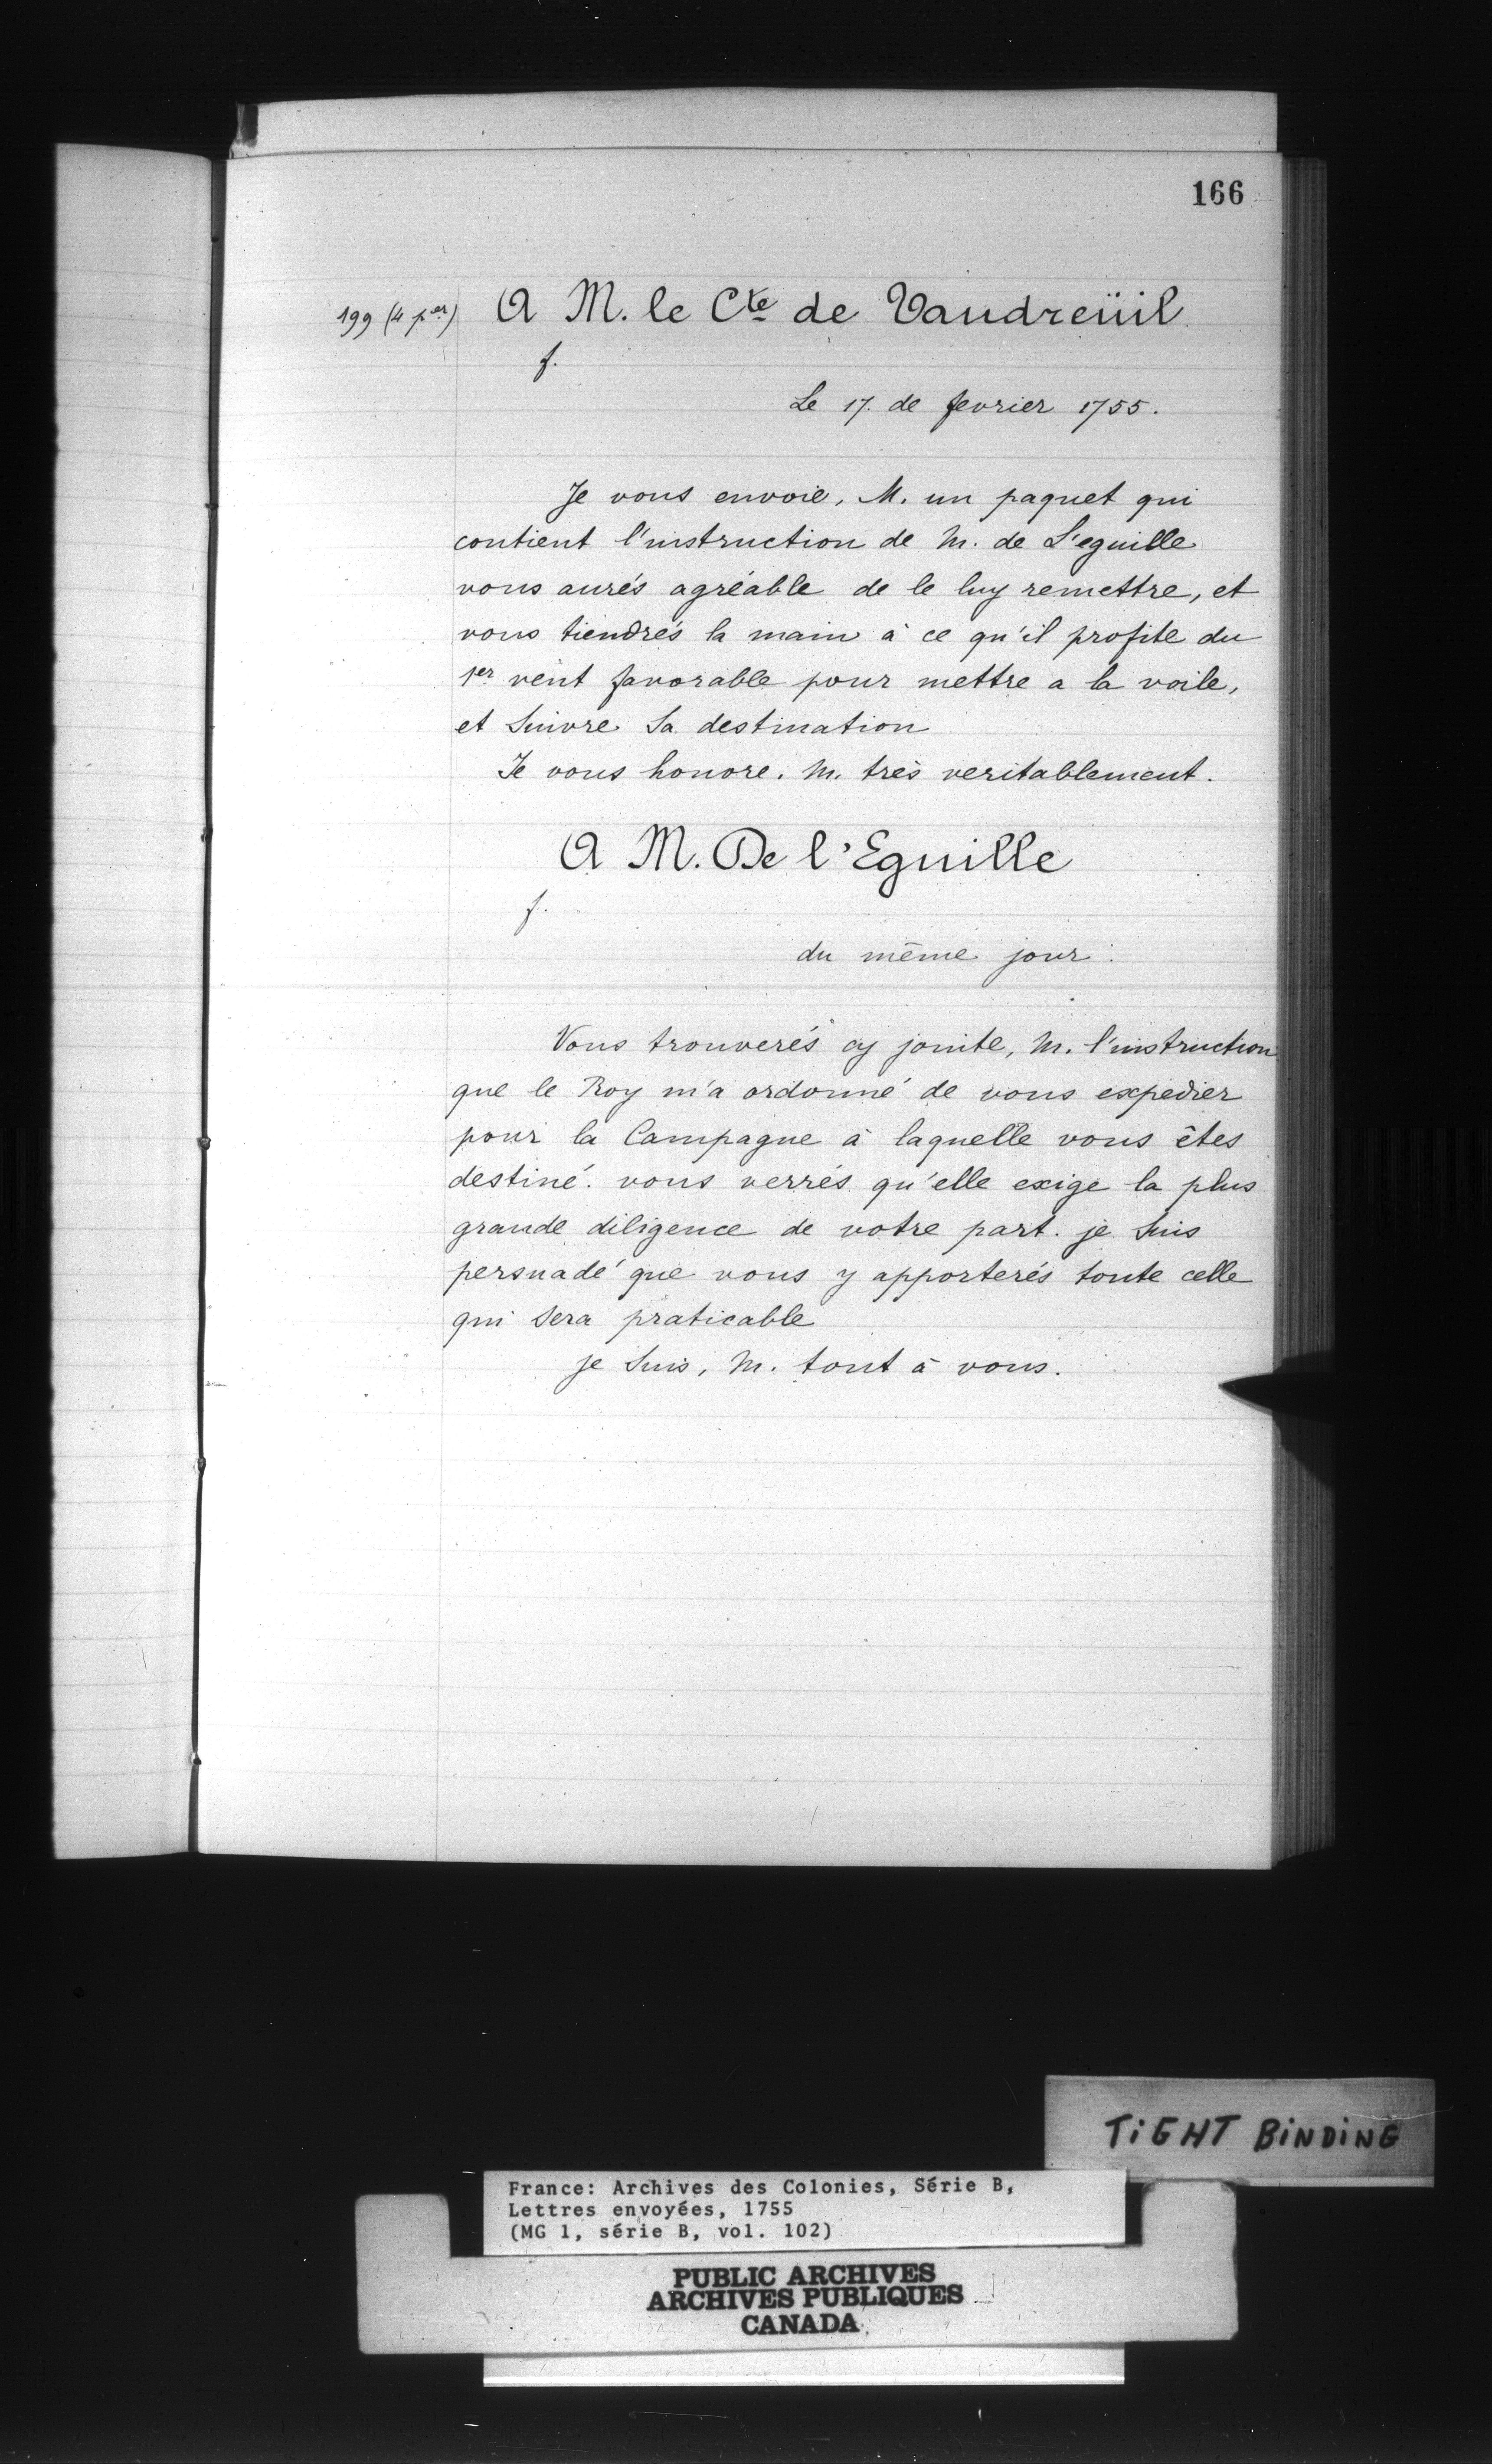 166
199 (4 per) A M. le Cte de Vaudreüil
f.
Le 17. de fevrier 1755.
Je vous envoie, M. un paquet qui
contient l'instruction de M. de L'eguille
vous aurés agréable de le luy remettre, et
vous tiendrés la main à ce qu'il profite du
1er vent favorable pour mettre a la voile,
et Suivre Sa destination
Je vous honore. M. très veritablement.
A M. De l'Eguille
f.
du même jour.
Vous trouverés cy jointe, M. l'instruction
que le Roy m'a ordonné de vous expedier
pour la Campagne à laquelle vous êtes
destiné. vous verrés qu'elle exige la plus
grande diligence de votre part. je Suis
persuadé que vous y apporterés toute celle
qui Sera praticable
je Suis, M. tout à vous.
TIGHT BINDING
France: Archives des Colonies, Série B,
Lettres envoyées, 1755
(MG 1, série B, vol. 102)
PUBLIC ARCHIVES
ARCHIVES PUBLIQUES
CANADA